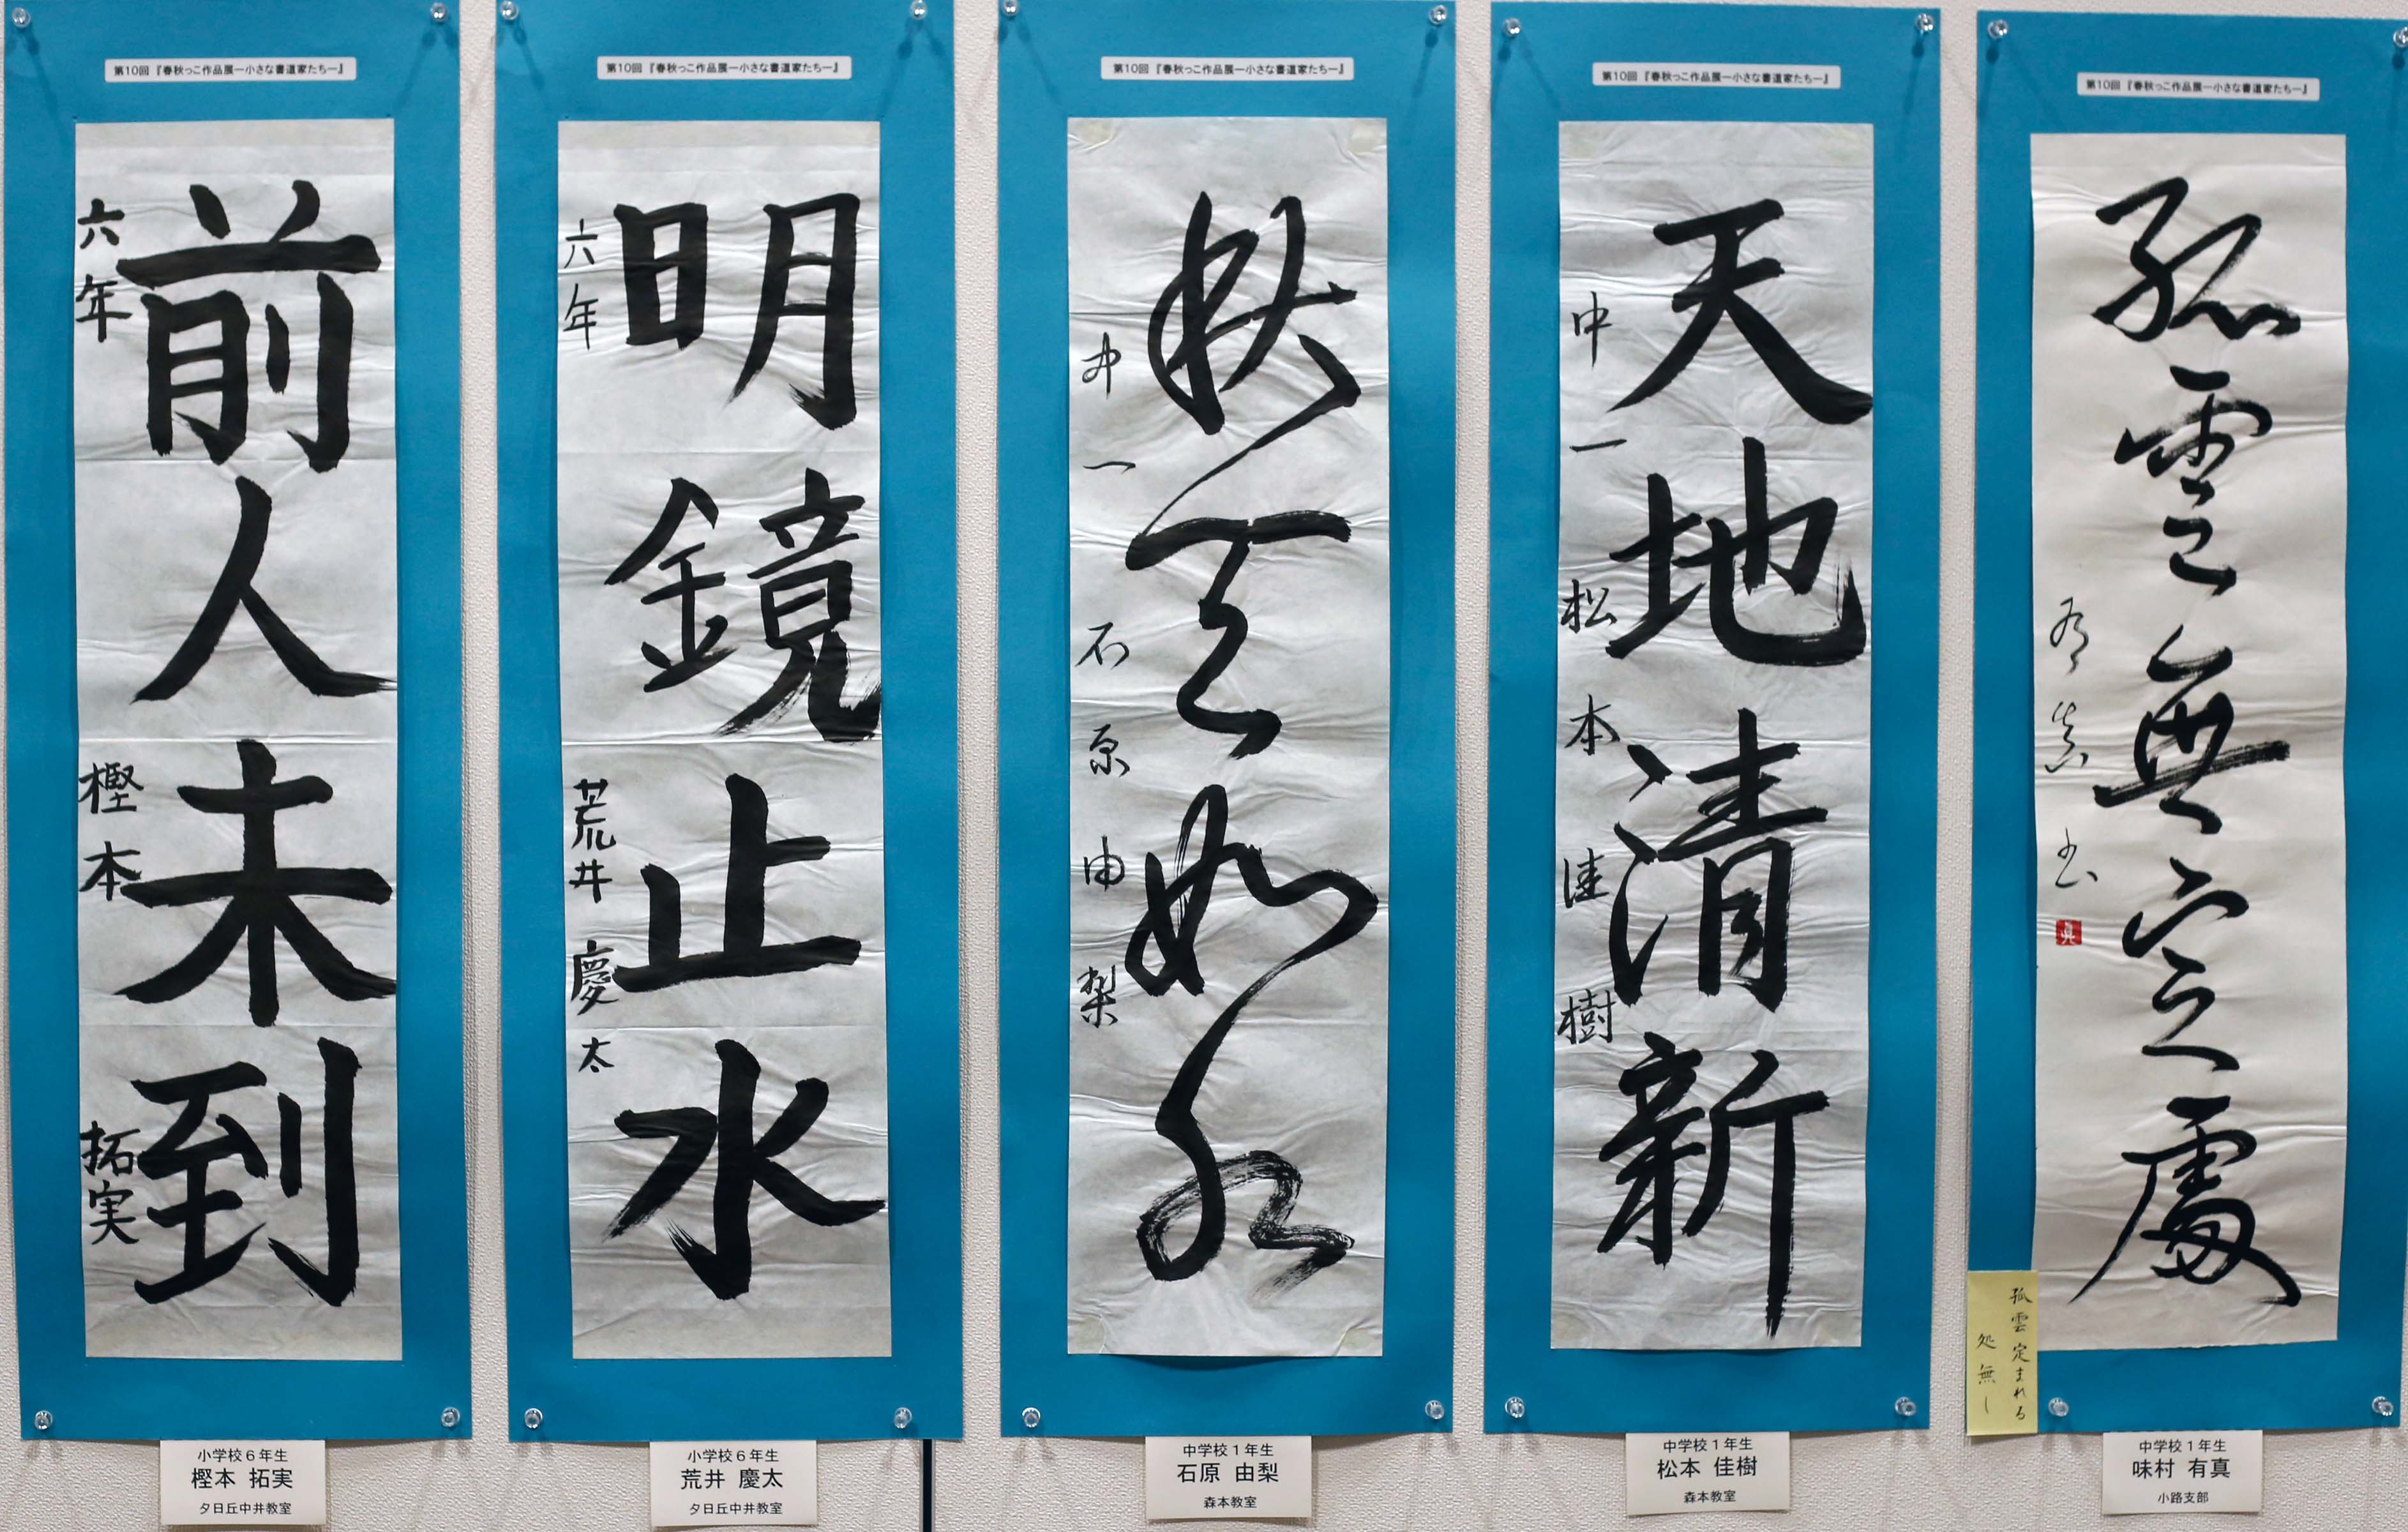 第10回『春秋っこ作品展ー小さな書道家たちー』
前人未到
六年 樫本 拓実
小学校6年生
樫本 拓実
夕日丘中井教室
第10回『春秋っこ作品展ー小さな書道家たちー』
明鏡止水
六年 荒井 慶太
小学校6年生
荒井 慶太
夕日丘中井教室
第10回『春秋っこ作品展ー小さな書道家たちー』
秋天如水
中一 石原由梨
中学校1年生
石原 由梨
森本教室
第10回『春秋っこ作品展ー小さな書道家たちー』
天地清新
中一 松本佳樹
中学校1年生
松本 佳樹
森本教室
第10回『春秋っこ作品展ー小さな書道家たちー』
孤雲無定處
有真書
眞
孤雲定まれる
処無し
中学校1年生
味村 有真
小路支部